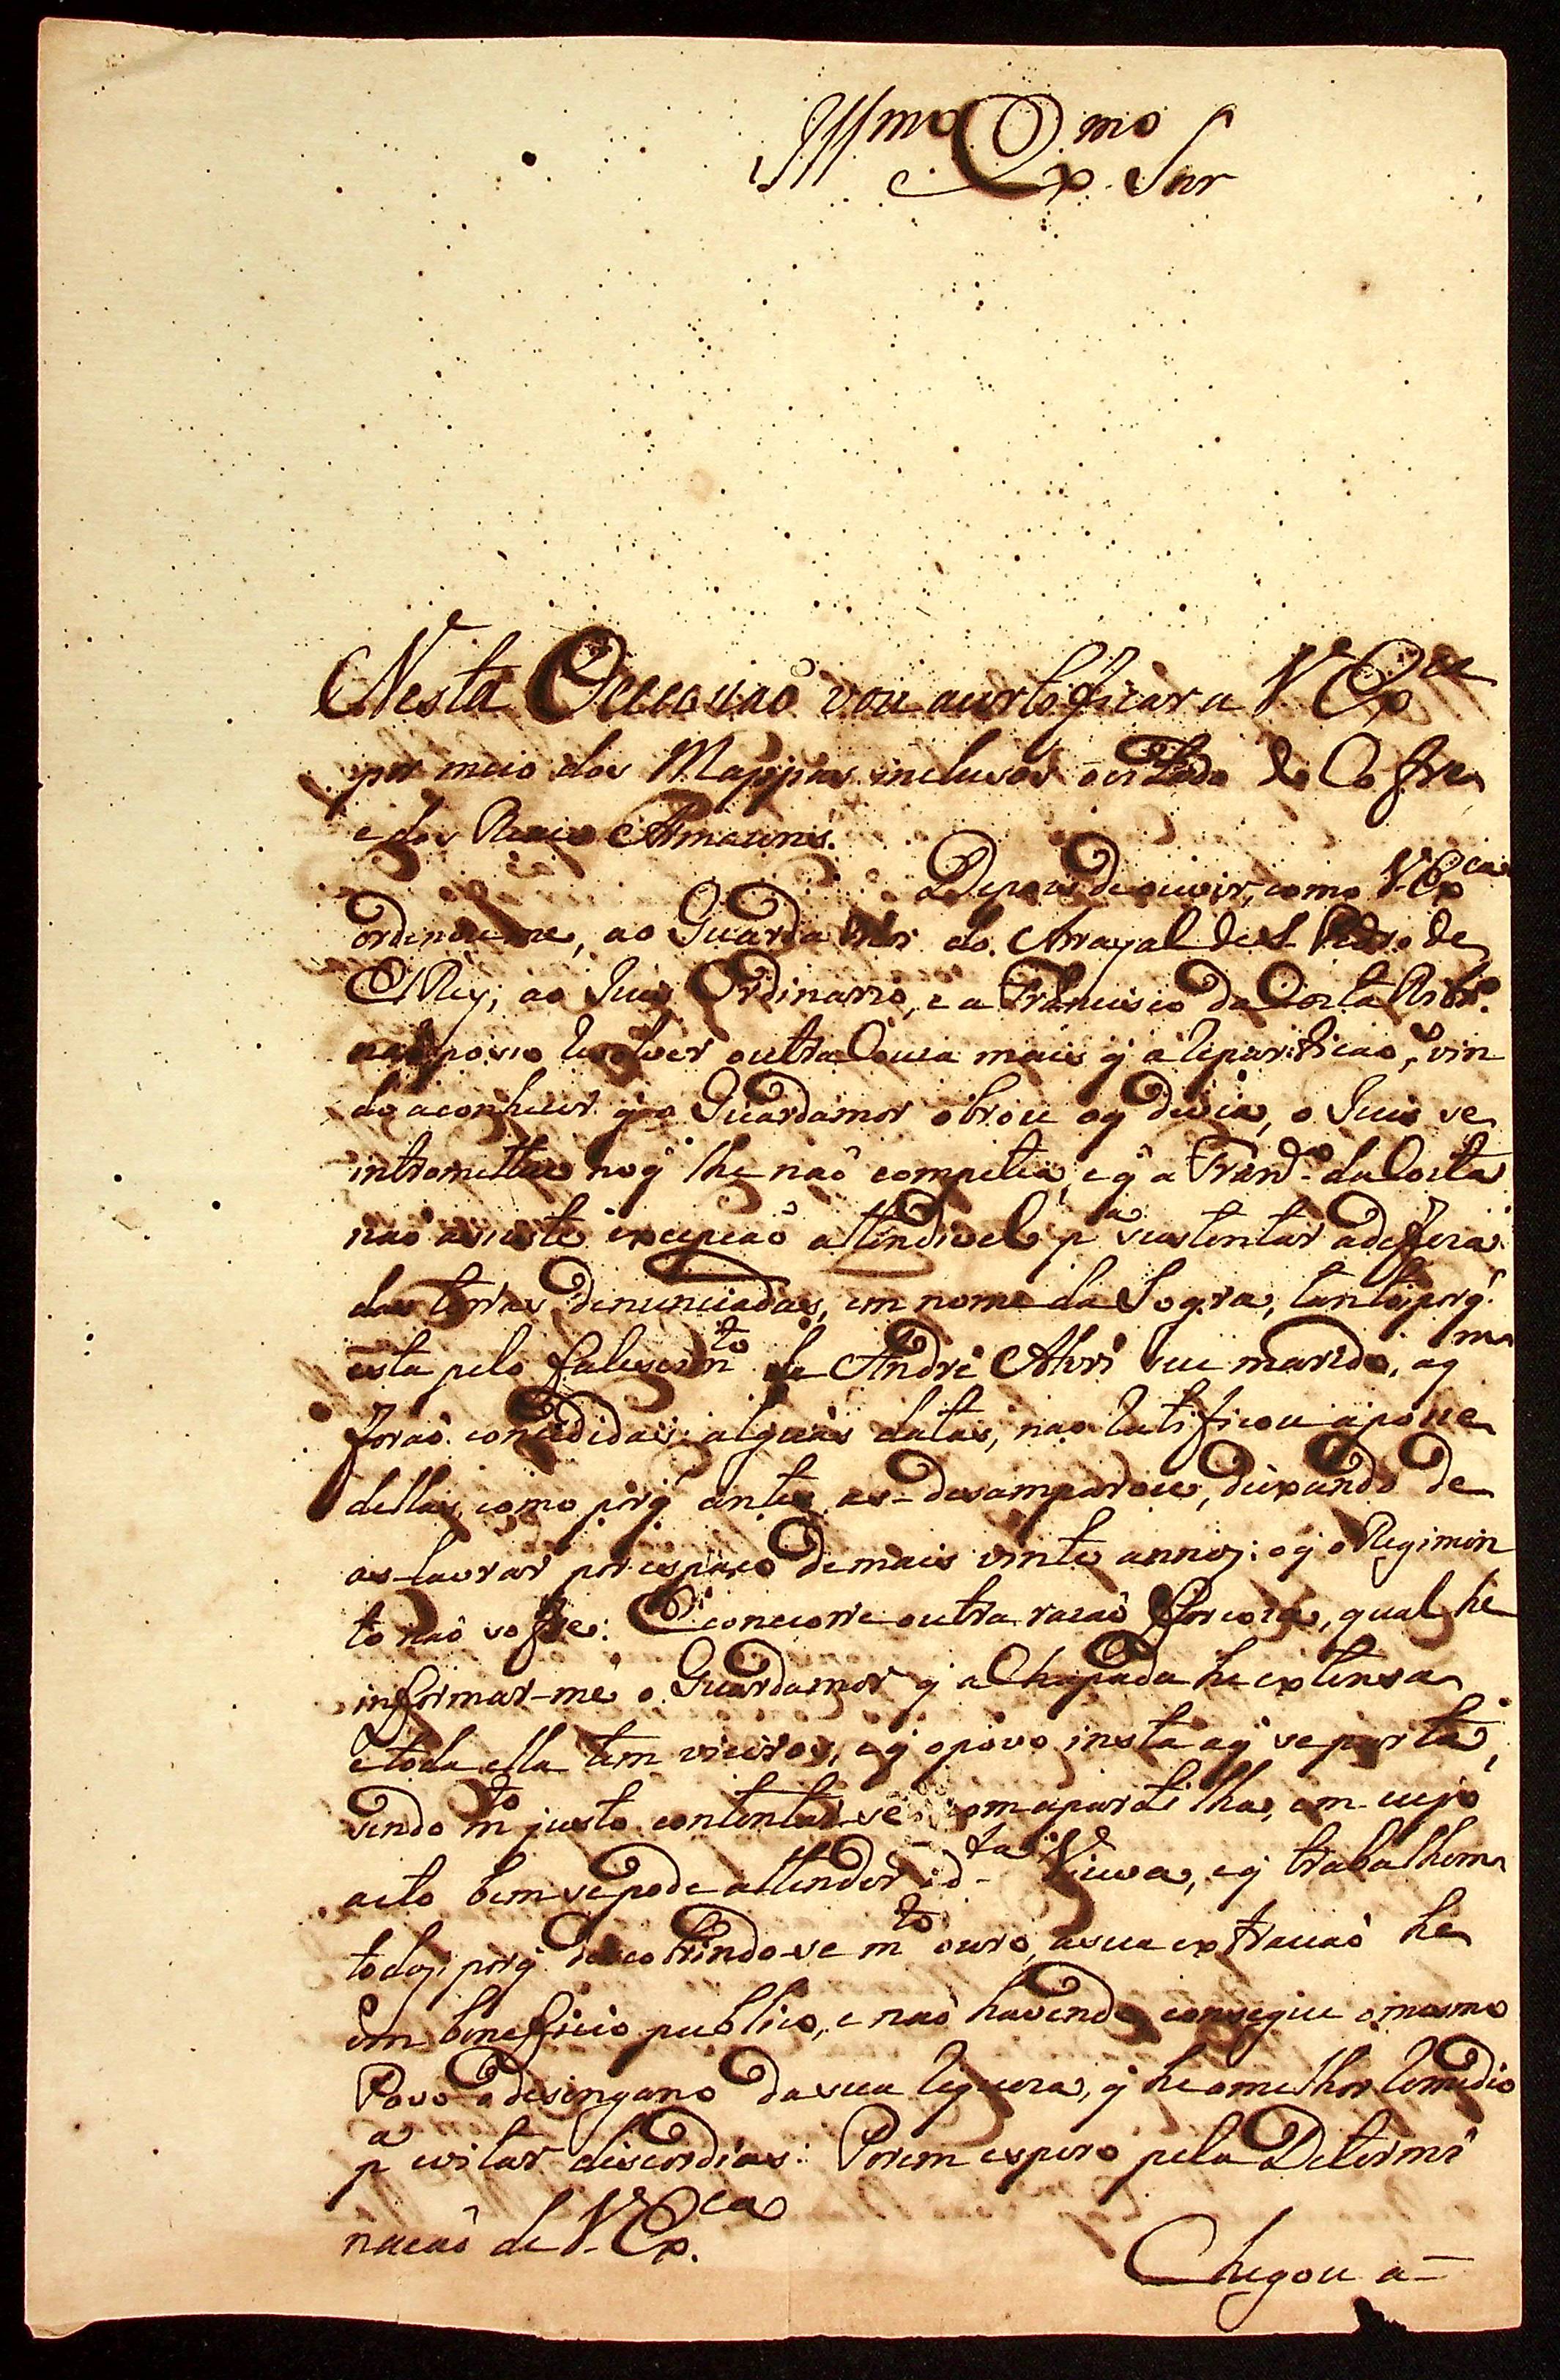 Illmo Exmo Snr
Nesta Occasiaõ vou a certeficar a V Exca
por meio dos Mappas inclusos o estado do Cofre
e dos Reaes Armazens.
Depois de ouvir, como V Exca
ordenoume, ao Guarda Mor do Arrayal de S Pedro de
El Rey; ao Juis Ordinario, e a Francisco da Costa Ribro.
naõ posso resolver outra Couza mais q̃ a repartiçaõ, vin
do a conhecer q̃ o Guardamor obrou oq̃ devia, o Juis se
intrometteo noq̃ lhe naõ competia, e q̃ a Franco. da Costa
naõ assiste excepçaõ attendivel pa sustentar a deffeza
das terras denunciadas, em nome da Sogra, tanto porq̃
esta pelo falescimto de André Alvri seu marido, aqm
foraõ concedidas alguãs datas, naõ ratificou a posse
dellas, como porq̃ antes as-desamparou, deixando de
as-lavrar por espaço de mais vinte annos: o q̃ o Regimen
to naõ sofre: E concorre outra razaõ forçoza, qual he
informar-me o Guardamor q̃ a Chapada he extensa
e toda ella tem vieiros, e q̃ o povo insta aq̃ se parta,
sendo mto justo contentar-se com a partilha, em cujo
acto bem se pode attender ad-ta Viuva, e q̃ trabalhem
todos, porq̃ descobrindo-se mto ouro, a sua extracaõ he
em beneficio publico, e naõ havendo consegue o mesmo
Povo o desengano da sua requeza, q̃ he o melhor remedio
pa evitar discordias: Porem espero pela Determi
naçaõ de V. Exca.
Chegou a-